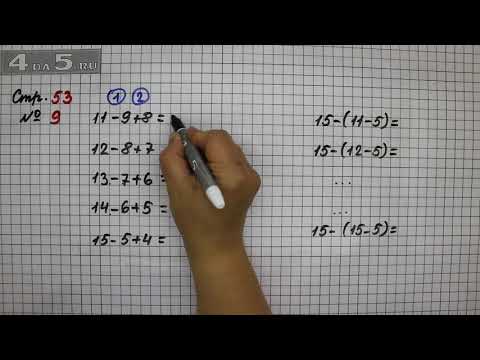 4 DA 5.RU
Стр. 53
№ 9
1 2
11-9+8=
12-8+7
13-7+6=
14-6+5=
15-5+4=
15-(11-5)=
15-(12-5)=
...
...
15-(15-5)=